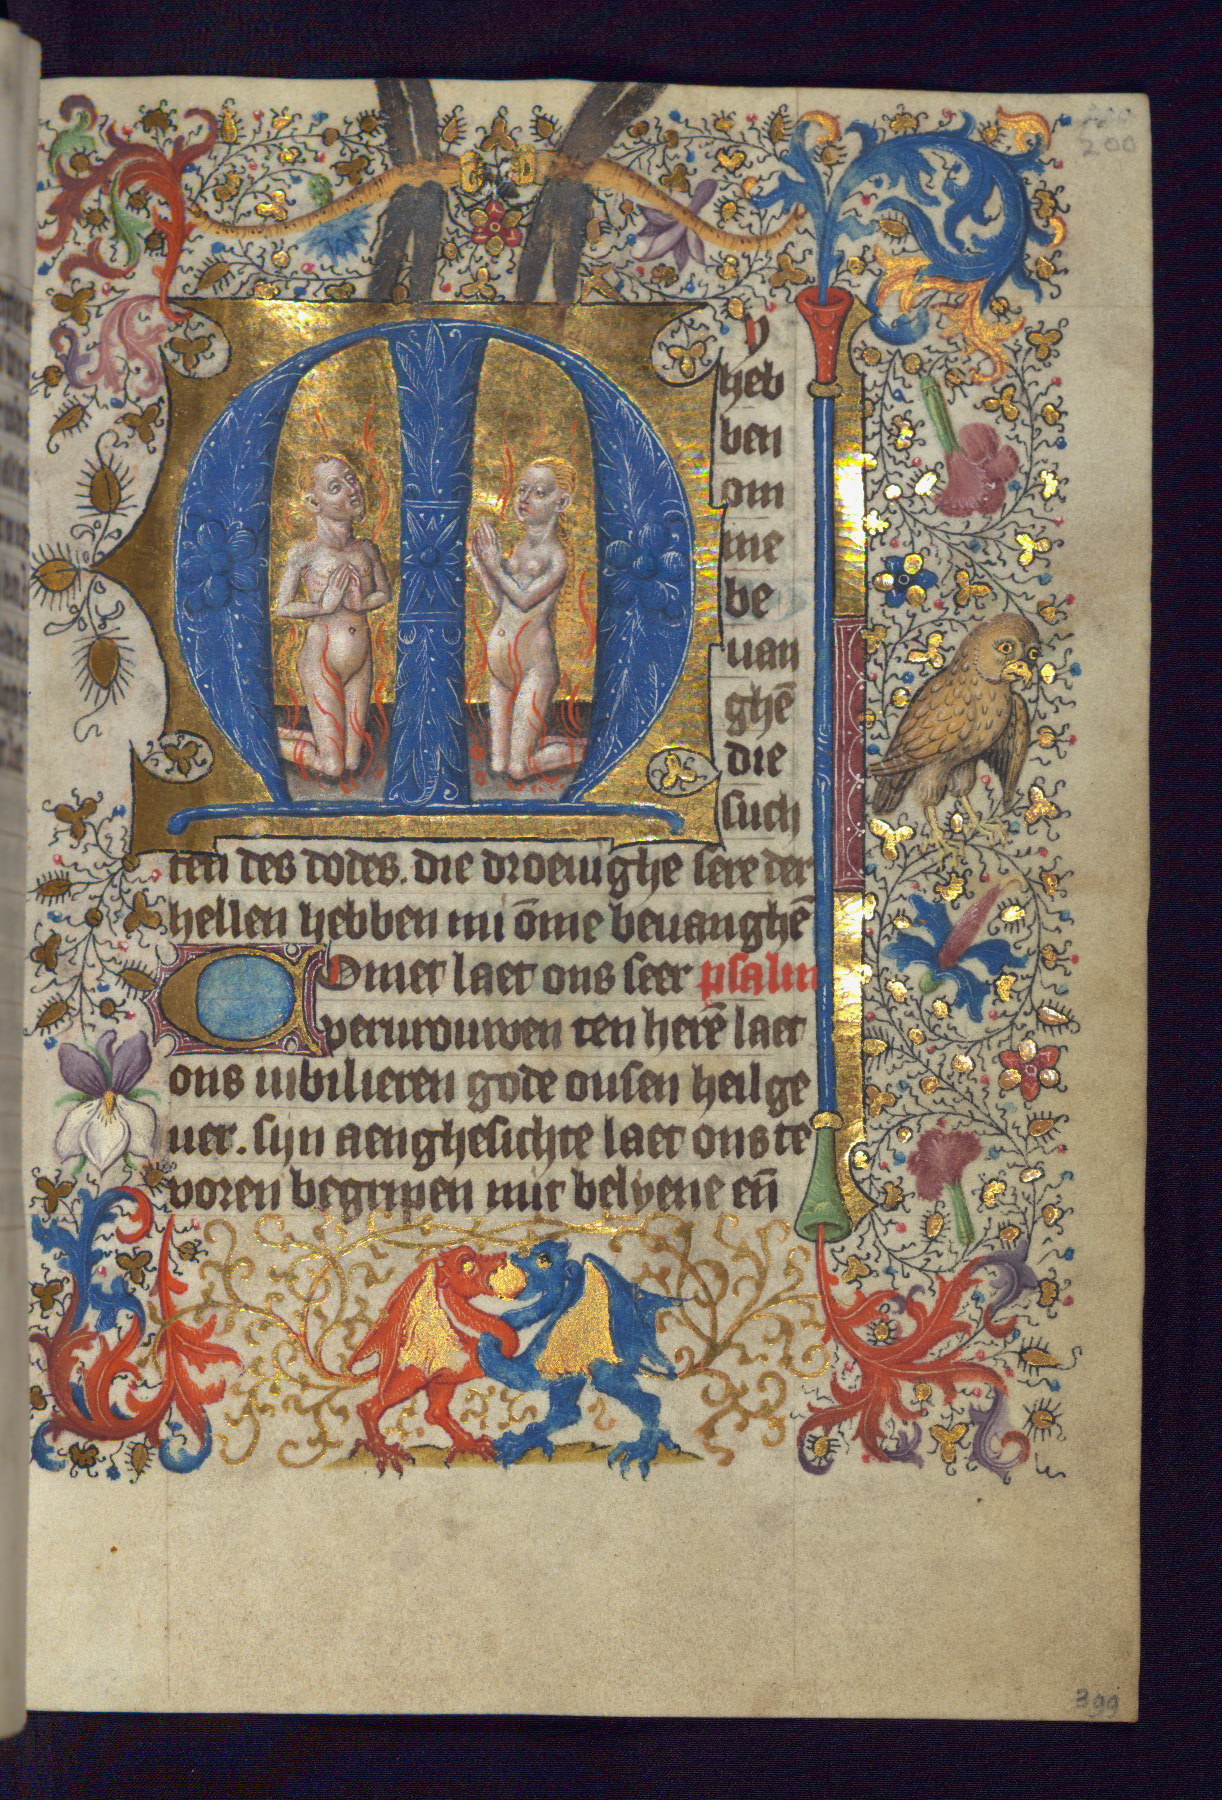 200
M y
heb
ben
om
me
be
uan
ghē
die
such
ten des dodes. die droeuighe sere der
hellen hebben mi ōme beuanghē
Comet laet ons seer psalm
vervrouwen ten herē laet
ons iubilieren gode onsen heilge
uer. sijn aenghesichte laet ons te
voren begripen mit belyene eñ
399